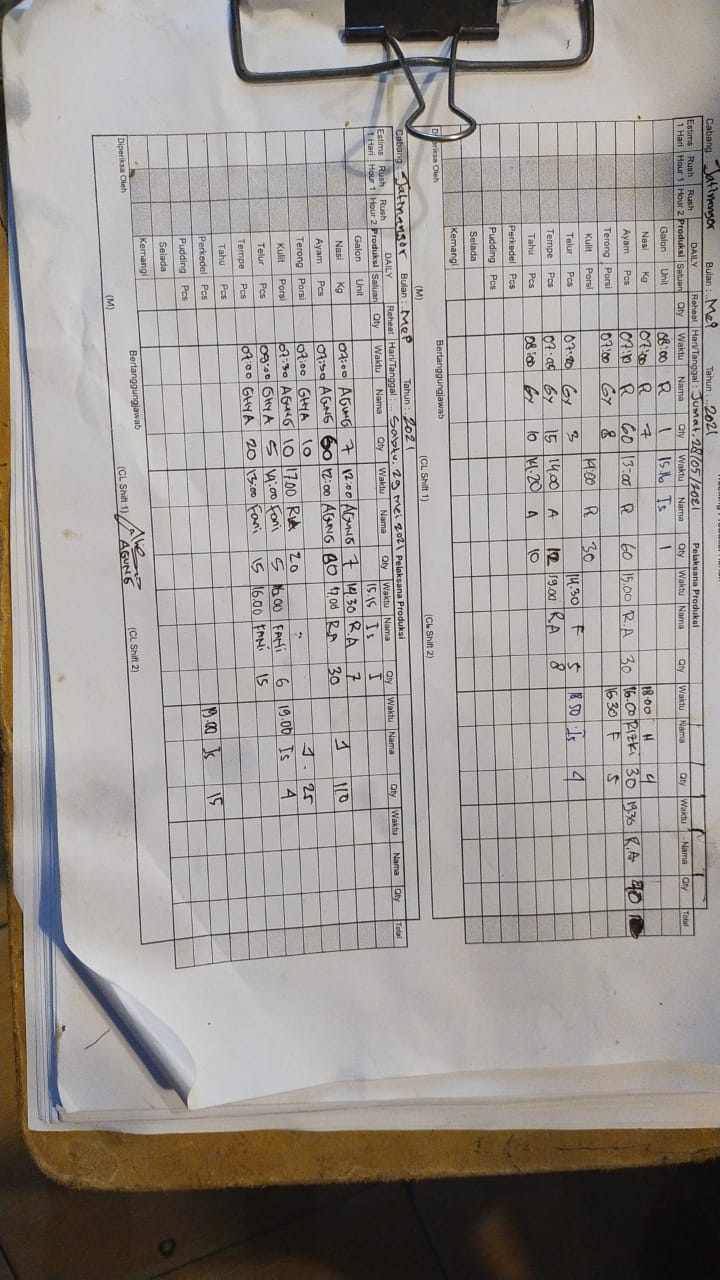 Cabang : Jatinangor Bulan : Mei Tahun : 2021
Estims 1 Hari Rush Hour 1 Rush Hour 2 DAILY Produksi Satuan Reheat Qty Hari/Tanggal : Jumat, 28/05/2021 Pelaksana Produksi
Waktu Nama Qty Waktu Nama Qty Waktu Nama Qty Waktu Nama Qty Waktu Nama Qty Total
Galon Unit 08:00 R 1 15.16 Is 1
Nasi Kg 07:00 R 7 18.00 H 4
Ayam Pcs 07:10 R 60 13.00 R 60 15.00 R.A 30 16.00 Rizki 30 19.35 R.A
Terong Porsi 07:00 Gy 8 16.30 F 5
Kulit Porsi 14.00 R 30
Telur Pcs 07.00 Gy 3 14.30 F 5 18.50 Is 4
Tempe Pcs 07.05 Gy 15 14.00 A 12 19.00 R.A 8
Tahu Pcs 08:00 Gy 10 14.20 A 10
Perkedel Pcs
Pudding Pcs
Selada
Kemangi
Diperiksa Oleh Bertanggungjawab
(M) (CL Shift 1) (CL Shift 2)
Cabang : Jatinangor Bulan : Mei Tahun : 2021
Estims 1 Hari Rush Hour 1 Rush Hour 2 DAILY Produksi Satuan Reheat Qty Hari/Tanggal : Sabtu, 29 Mei 2021 Pelaksana Produksi
Waktu Nama Qty Waktu Nama Qty Waktu Nama Qty Waktu Nama Qty Waktu Nama Qty Total
Galon Unit 15.15 Is 1
Nasi Kg 07:00 AGUNG 7 12:00 AGUNG 7 14.30 R.A 7
Ayam Pcs 07:30 AGUNG 60 12:00 AGUNG 80 17.00 R.A 30 110
Terong Porsi 07:00 GHYA 10
Kulit Porsi 07:30 AGUNG 10 17.00 20 25
Telur Pcs 07:00 GHYA 5 14:00 Fani 5 16.00 FANI 6 19.00 Is 4
Tempe Pcs 07:00 GHYA 20 13:00 Fani 15 16.00 FANI 15
Tahu Pcs
Perkedel Pcs 19.00 Is 15
Pudding Pcs
Selada
Kemangi
Diperiksa Oleh Bertanggungjawab
AGUNG
(M) (CL Shift 1) (CL Shift 2)